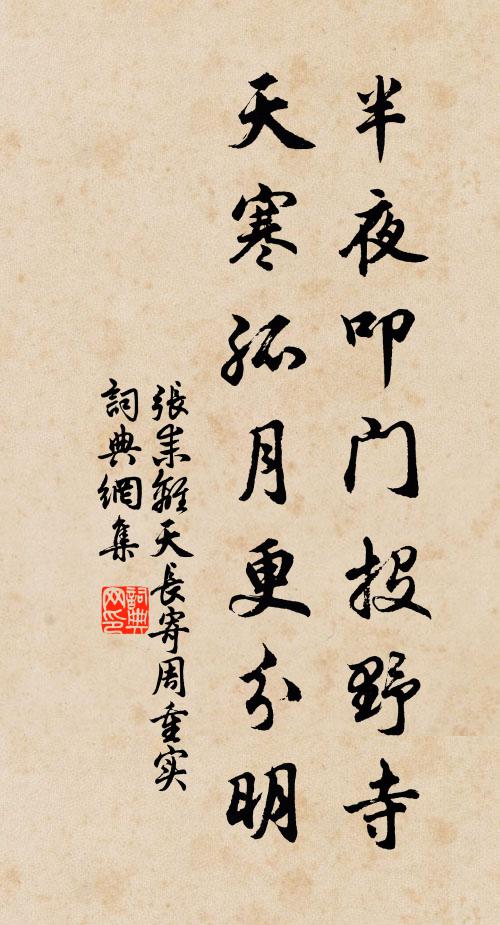 半夜叩门投野寺
天寒孤月更分明
張耒離天長寄周重实
詞典網集
詞典
网印